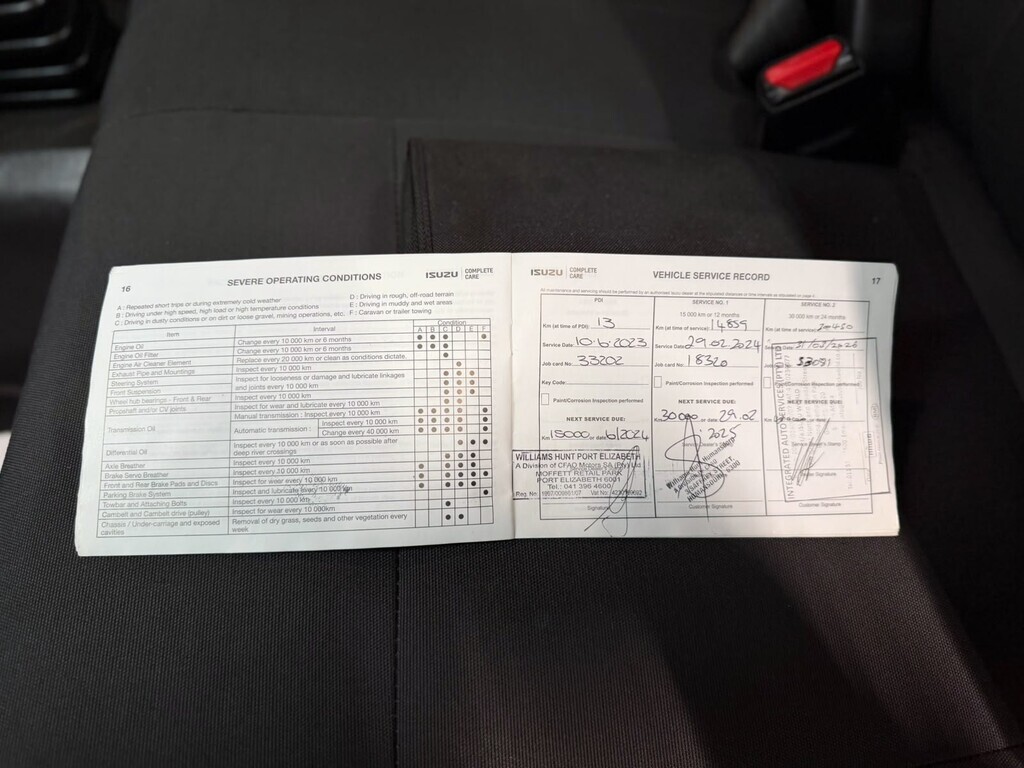 16
SEVERE OPERATING CONDITIONS
ISUZU COMPLETE CARE
A : Repeated short trips or during extremely cold weather
B : Driving under high speed, high load or high temperature conditions
C : Driving in dusty conditions or on dirt or loose gravel, mining operations, etc.
D : Driving in rough, off-road terrain
E : Driving in muddy and wet areas
F : Caravan or trailer towing
Item Interval Condition
A B C D E F
Engine Oil Change every 10 000 km or 6 months
Engine Oil Filter Change every 10 000 km or 6 months
Engine Air Cleaner Element Replace every 20 000 km or clean as conditions dictate.
Exhaust Pipe and Mountings Inspect every 10 000 km
Steering System Inspect for looseness or damage and lubricate linkages and joints every 10 000 km
Front Suspension Inspect every 10 000 km
Wheel hub bearings - Front & Rear Inspect for wear and lubricate every 10 000 km
Propshaft and/or CV joints Manual transmission : Inspect every 10 000 km
Transmission Oil Automatic transmission : Inspect every 10 000 km
Change every 40 000 km
Differential Oil Inspect every 10 000 km or as soon as possible after deep river crossings
Axle Breather Inspect every 10 000 km
Brake Servo Breather Inspect every 20 000 km
Front and Rear Brake Pads and Discs Inspect for wear every 10 000 km
Parking Brake System Inspect and lubricate every 10 000 km
Towbar and Attaching Bolts Inspect every 10 000 km
Cambelt and Cambelt drive (pulley) Inspect for wear every 10 000km
Chassis / Under-carriage and exposed cavities Removal of dry grass, seeds and other vegetation every week
ISUZU COMPLETE CARE
VEHICLE SERVICE RECORD
17
PDI
Km (at time of PDI): 13
Service Date: 10.6.2023
Job card No: 33202
Key Code:
Paint/Corrosion Inspection performed
NEXT SERVICE DUE:
Km 15000 or date 6/2024
WILLIAMS HUNT PORT ELIZABETH
A Division of CFAO Motors SA (Pty) Ltd
MOFFETT RETAIL PARK
PORT ELIZABETH 6001
Tel: 041 396 4600
Signature
SERVICE NO. 1
15 000 km or 12 months
Km (at time of service): 14859
Service Date: 29.02.2024
Job card No: 18320
Paint/Corrosion Inspection performed
NEXT SERVICE DUE:
Km 30000 or date 29.02
2025
Customer Signature
SERVICE NO. 2
30 000 km or 24 months
Km (at time of service)
Paint/Corrosion Inspection performed
NEXT SERVICE DUE
INTEGRATED AUTO SERVICES (PTY) LTD
Customer Signature